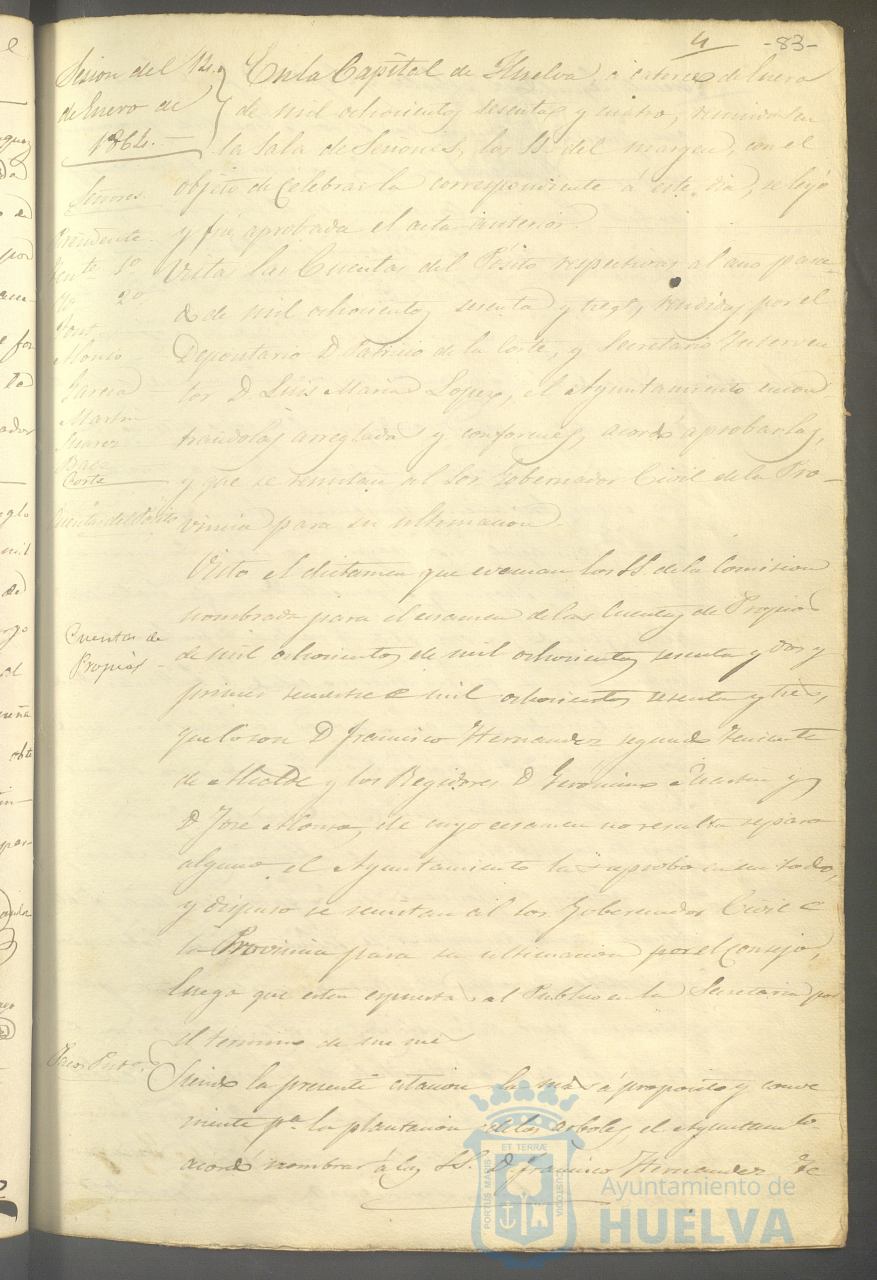 4 -83-
Sesion del 14
de Enero de
1864.
En la Capital de Huelva á catorce de Enero
de mil ochocientos sesenta y cuatro, reunidos en
la Sala de Sesiones, los SS. del margen, con el
objeto de celebrar la correspondiente á este dia, se leyó
y fué aprobada el acta anterior.
Señores.
Presidente.
Tente. 1º
Yd. 2º
Alonso
Garcia
Martin
Suarez
Baez
Corte
Cuentas del Pósito
Vistas las Cuentas del Pósito respectivas al año pasa-
do de mil ochocientos sesenta y tres, rendidas por el
Depositario D. Patricio de la Corte, y Secretario Interven
tor D. Luis Maria Lopez, el Ayuntamiento encon
trandolas arregladas y conformes, acordó aprobarlas,
y que se remitan al Sor. Gobernador Civil de la Pro-
vincia para su ultimacion.
Cuentas de
Propios
Visto el dictamen que evacuan los SS. de la Comision
nombrada para el examen de las Cuentas de Propios
de mil ochocientos de mil ochocientos sesenta y dos y
primer semestre de mil ochocientos sesenta y tres,
que lo son D. Francisco Hernandez segundo Teniente
de Alcalde y los Regidores D. Gerónimo Martin y
D. José Alonso, de cuyo examen no resulta reparo
alguno, el Ayuntamiento las aprobó en un todo,
y dispuso se remitan al Sor. Gobernador Civil de
la Provincia para su ultimacion por el Consejo,
luego que esten espuestas al Publico en la Secretaria por
el termino de un mes
Siendo la presente estacion la mas á proposito y conve
niente pa. la plantacion de los arboles, el Ayuntamto.
acordó nombrar á los SS. D. Francisco Hernandez Te
PORTUS MARIS ET TERRÆ CUSTODIA
Ayuntamiento de
HUELVA